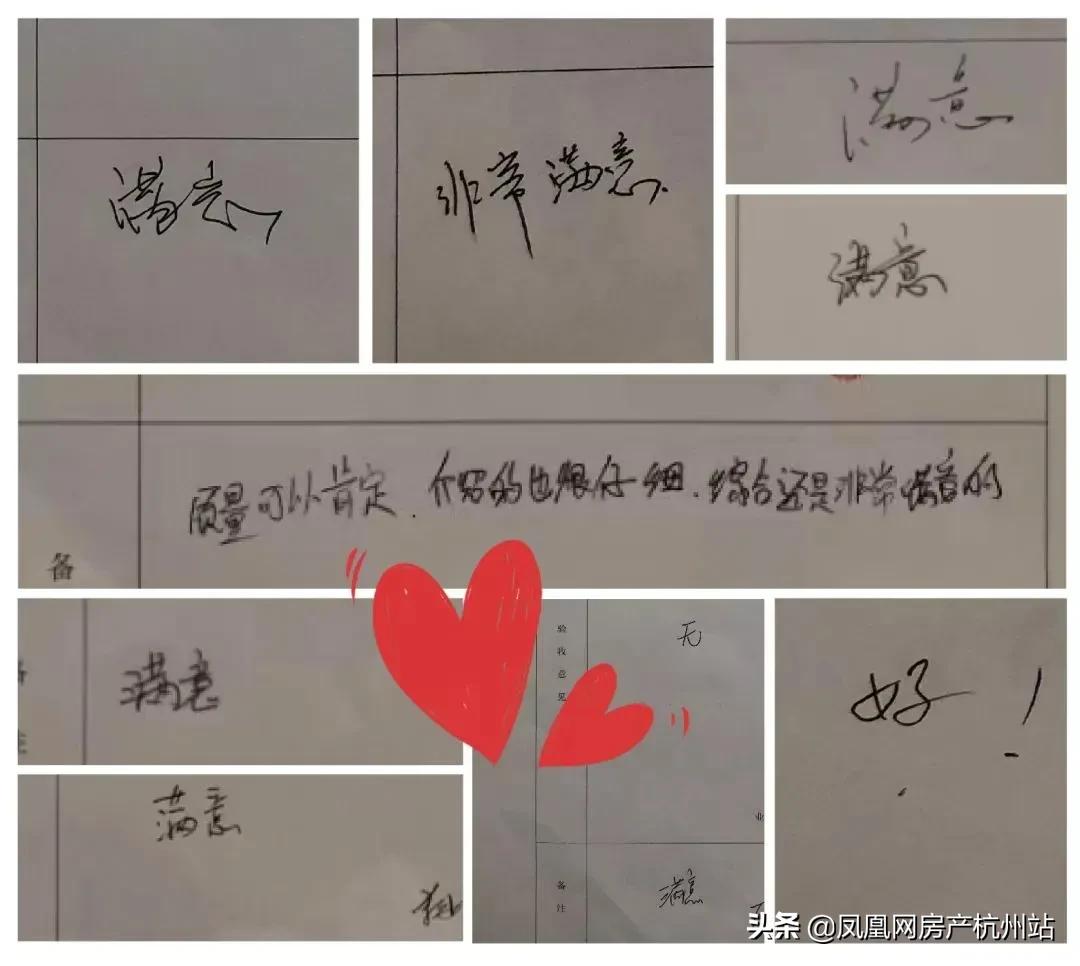 满意
非常满意
满意
满意
质量可以肯定.介绍的也很仔细.综合还是非常满意的
备
满意
满意
验收意见
无
业
备注
满意
好!
头条 @凤凰网房产杭州站